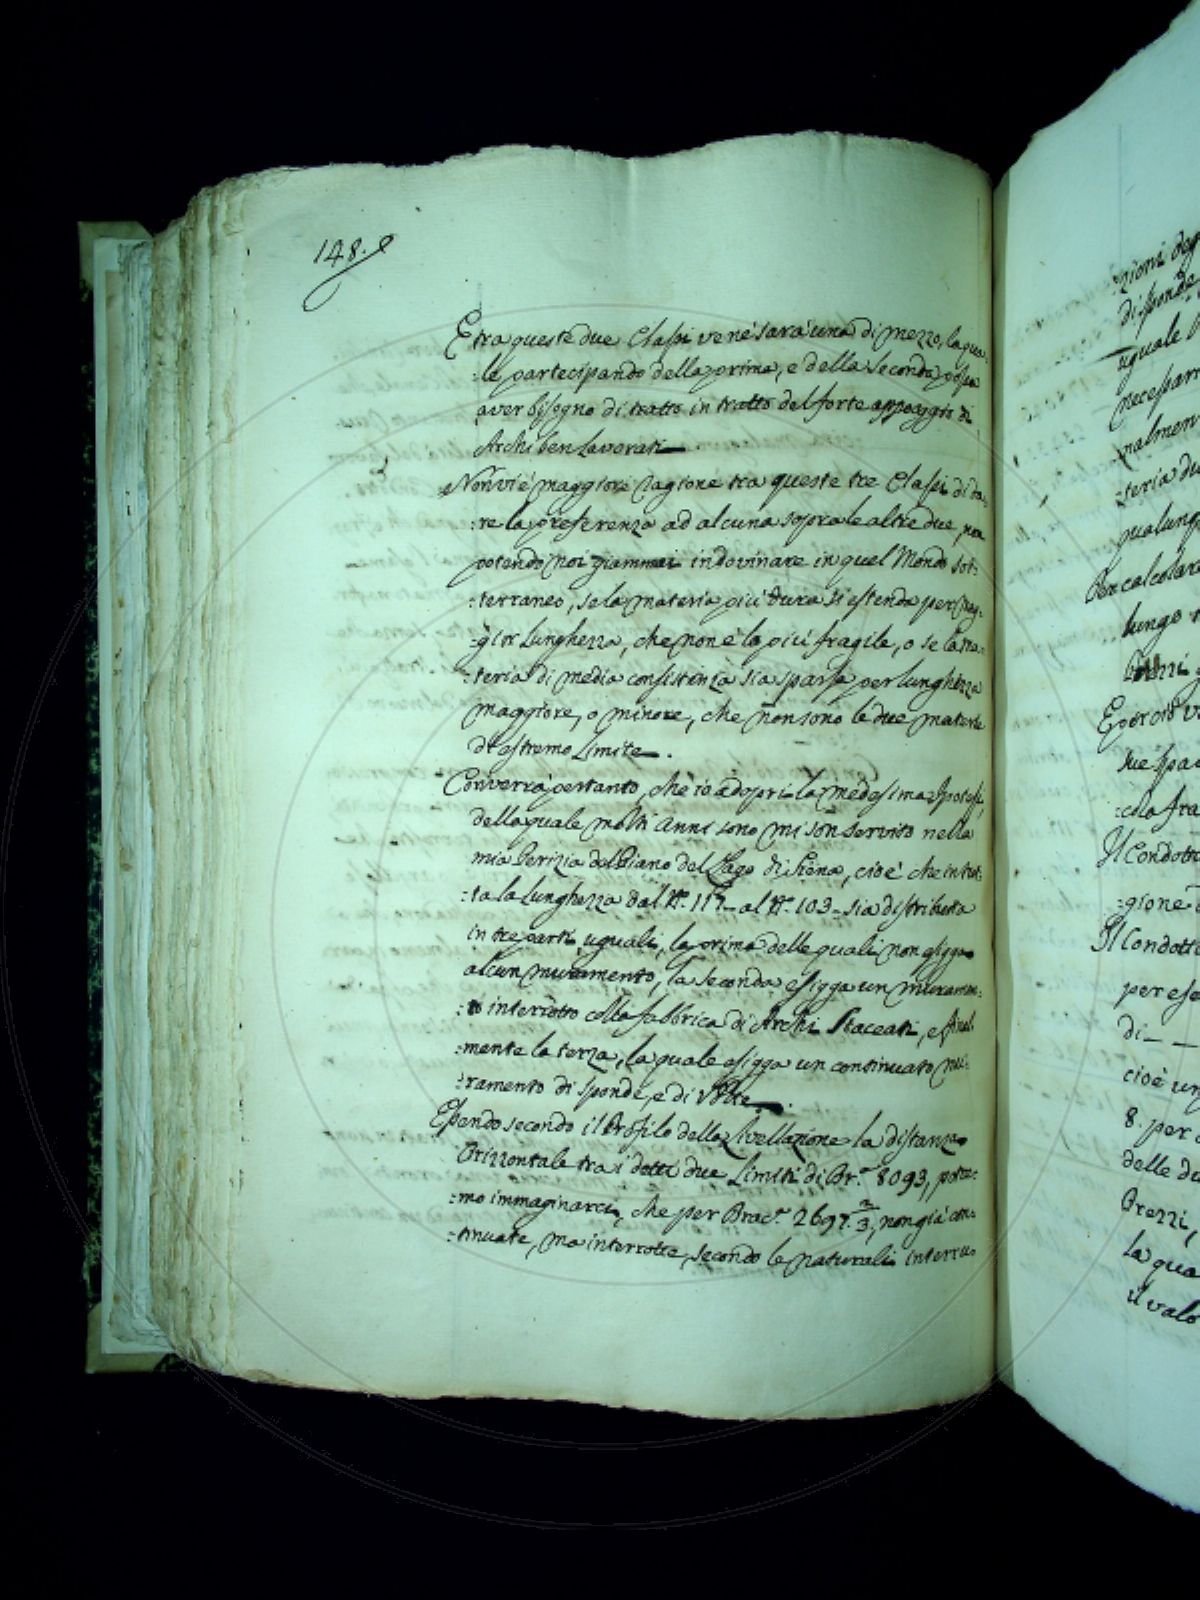 148.
E tra queste due Classi ve ne sarà una di mezzo, la qua-
:le partecipando della prima, e della seconda possa
aver bisogno di tratto in tratto del forte appoggio di
Archi ben lavorati.
Non vi è maggiore ragione tra queste tre Classi di da-
:re la preferenza ad alcuna sopra le altre due, non
potendo noi giammai indovinare in quel Mondo sot-
:terraneo, se la materia più dura si estenda per mag-
:gior lunghezza, che non è la più fragile, o se la ma-
:teria di media consistenza sia sparsa per lunghezza
maggiore, o minore, che non sono le due materie
di estremo Limite.
Converrà pertanto, che io adopri la medesima Ipotesi,
della quale molti anni sono mi son servito nella
mia Perizia del Piano del Lago di Siena, cioè che in tut-
:ta la lunghezza dal N.° 117 al N.° 103 sia distribuita
in tre parti uguali, la prima delle quali non esigga
alcun muramento, la seconda esigga un muramen-
:to interrotto colla fabbrica di Archi Staccati, e final-
:mente la terza, la quale esigga un continuato mu-
:ramento di sponde, e di Volte.
Essendo secondo il Profilo della Livellazione la distanza
Orizzontale tra i detti due Limiti di Br.ª 8093, potre-
:mo immaginarci, che per Brac.ª 2697 2/3, non già con-
:tinuate, ma interrotte, secondo le naturali interru-
:zioni deg
di sponde
uguale
necessari
nalmen
:teria du
qualunq
Per calcolare
lungo
Prezzi
E perciò
sue spa
:cola fra
Il Condott
:gione
Il Condott
per ese
di
cioè un
8. per
delle du
Prezzi,
la qua
il valo